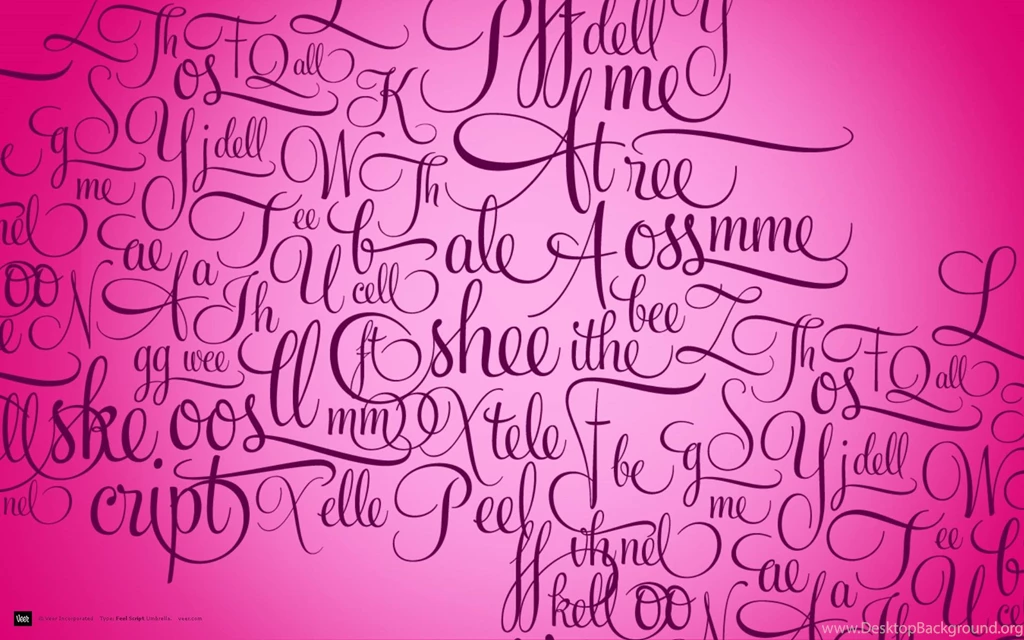 L Th F Q all
os
K
P ff dell y
me
g S Y j dell W Th
me
At ree
nel T ee b ale A oss mme
ae
oo N A a Th U cell
bee Z Th F Q all L
gg wee ll ft shee ithe
os
ske oos mm X tele F be g S Y j dell W
me
nel cript X elle Peel
ff nel T ee b
ae
kell oo N a U ce
veer © Veer Incorporated Type: Feel Script Umbrella. veer.com
www.DesktopBackground.org